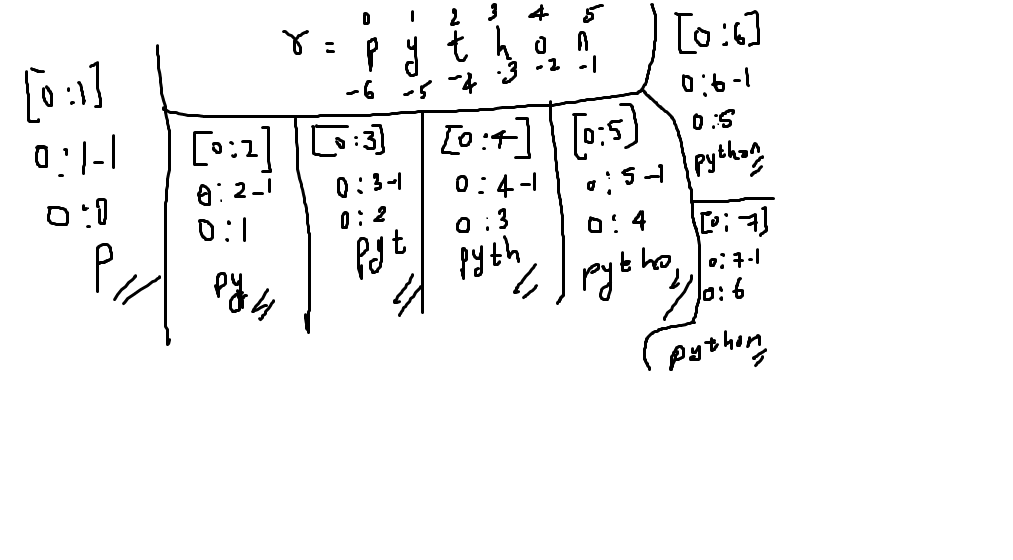 0 1 2 3 4 5
r = p y t h o n
-6 -5 -4 -3 -2 -1
[0:1]
0:1-1
0:0
p
[0:2]
0:2-1
0:1
py
[0:3]
0:3-1
0:2
pyt
[0:4]
0:4-1
0:3
pyth
[0:5]
0:5-1
0:4
pytho
[0:6]
0:6-1
0:5
python
[0:7]
0:7-1
0:6
python